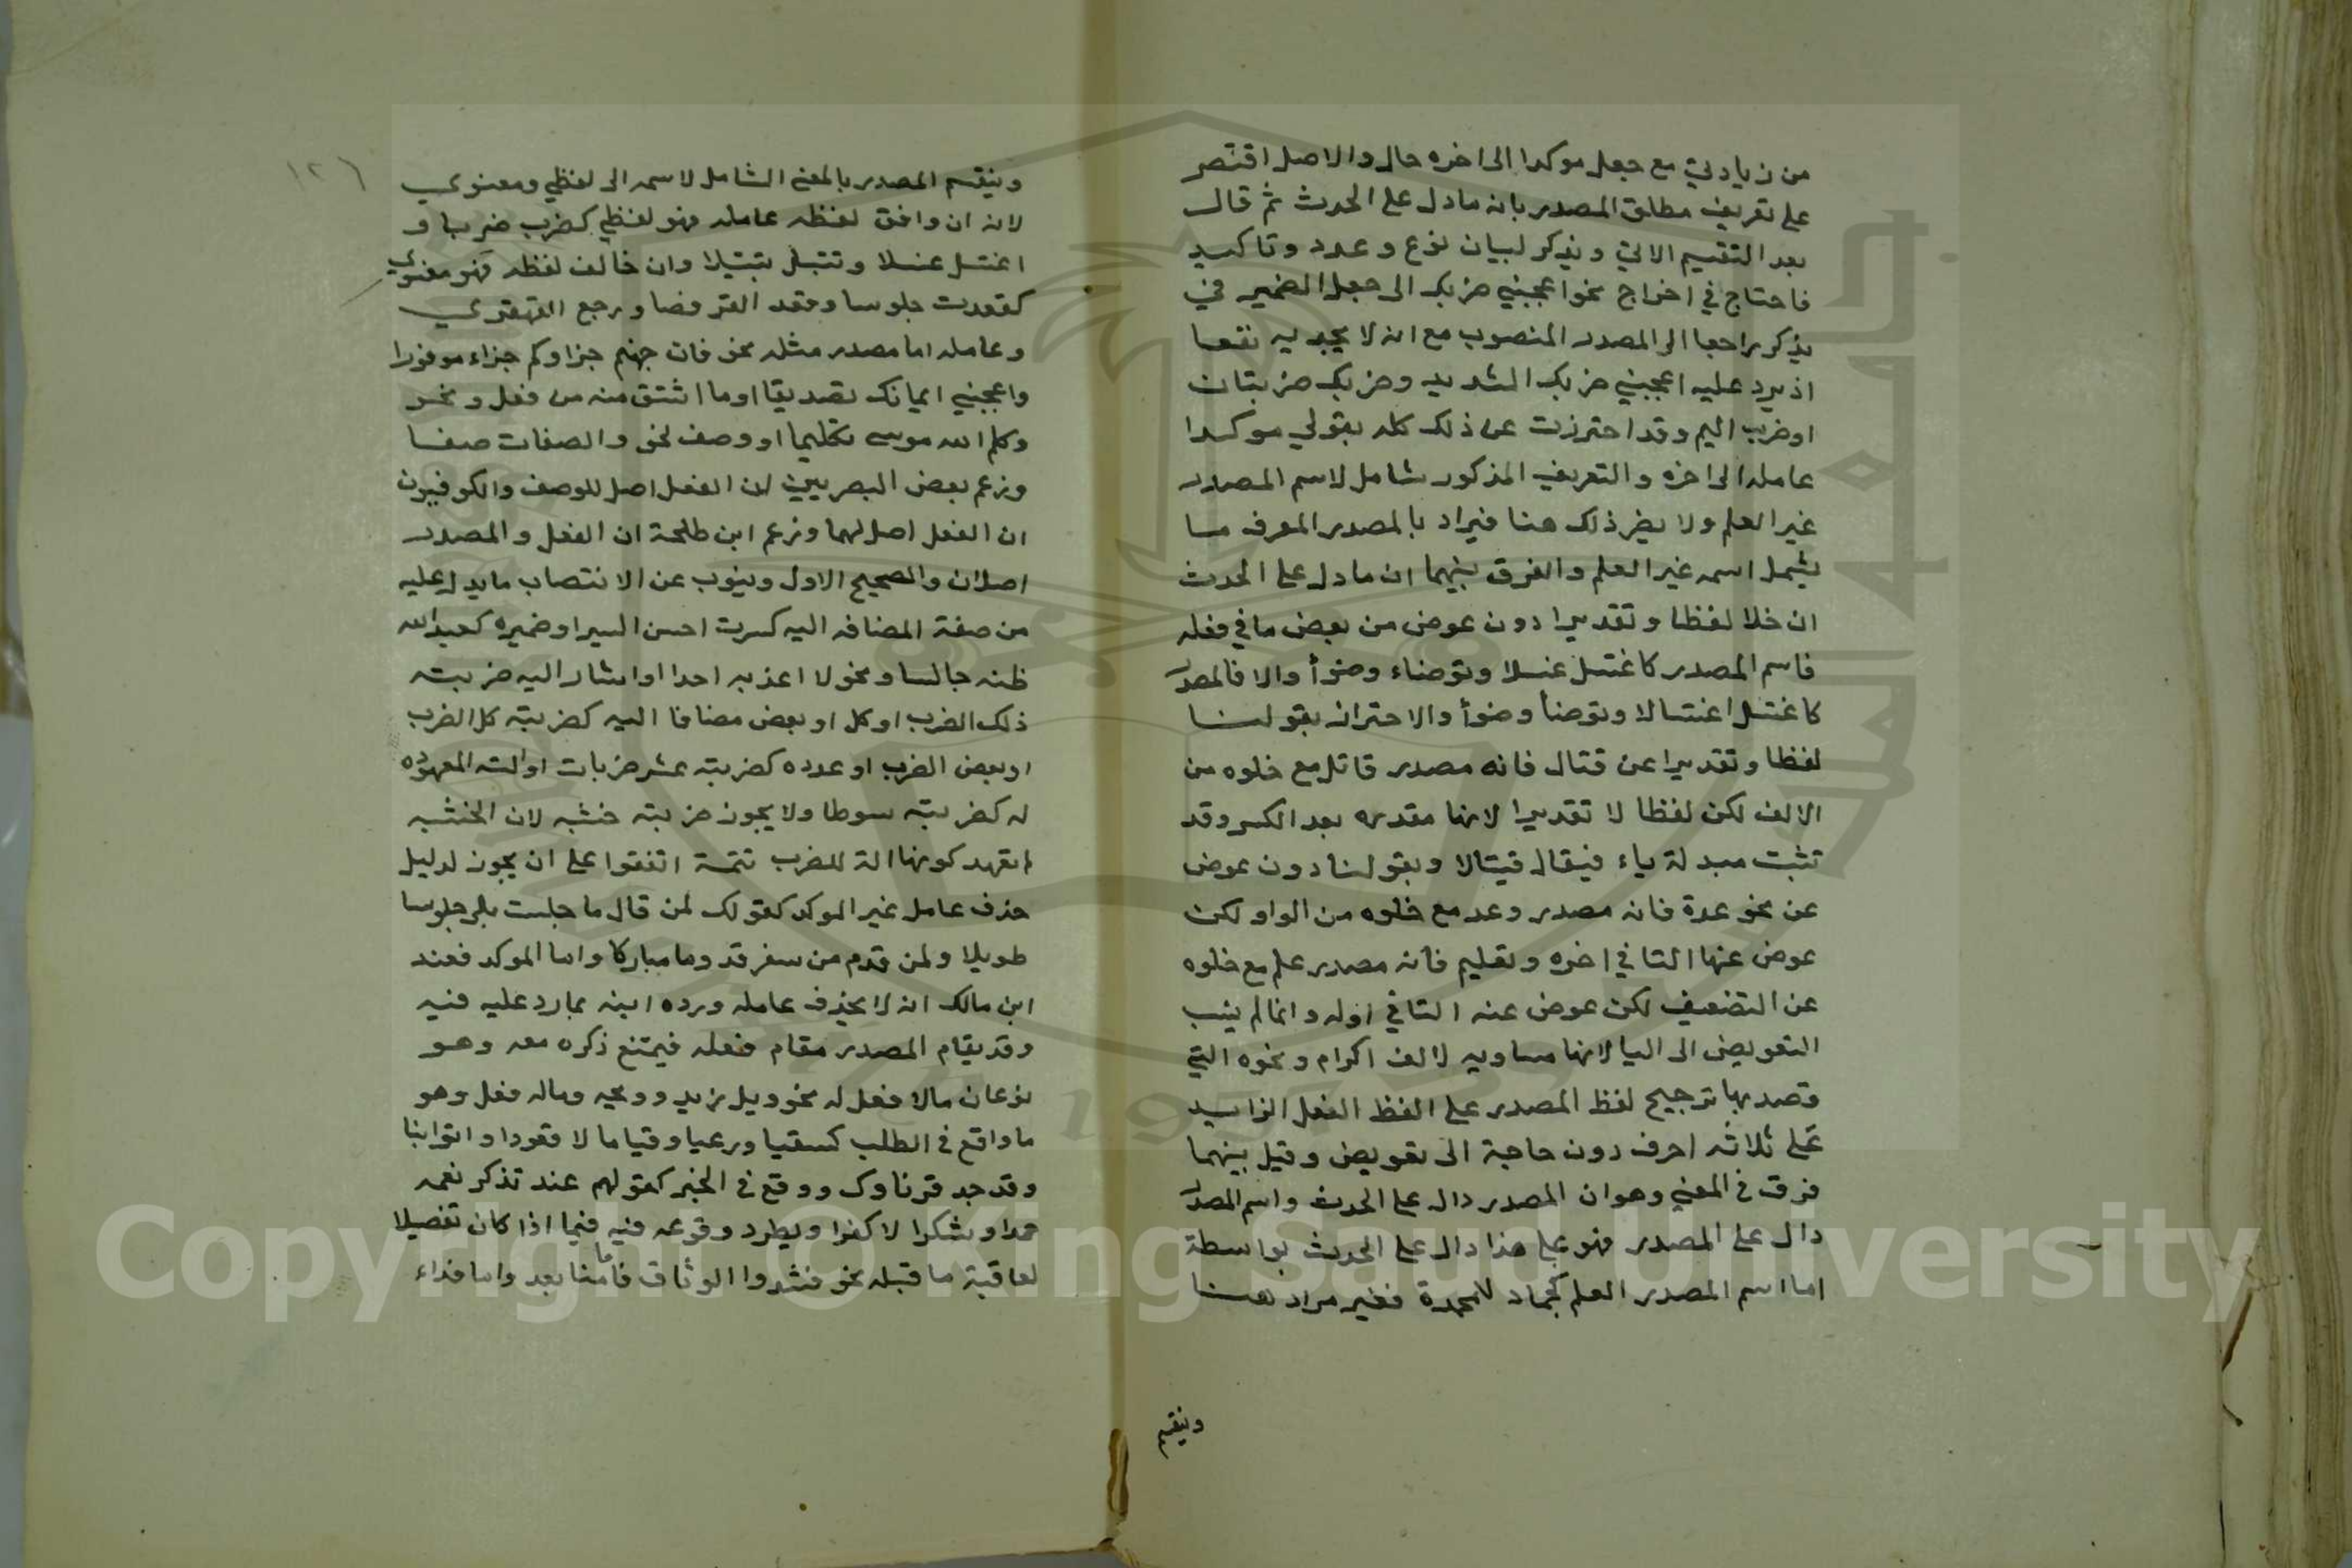 من زيادتي مع جعل موكدا الى اخره حال والاصل اقتصر
على تعريف مطلق المصدر بانه مادل على الحدث ثم قال
بعد التقسيم الاتي ويذكر لبيان نوع وعدد وتاكيد
فاحتاج في اخراج نحو اعجبني ضربك الى جعل الضمير في
يذكر راجعا الى المصدر المنصوب مع انه لا يجديه نفعا
اذ يرد عليه اعجبني ضربك الشديد وضربك ضربتان
اوضرب اليم وقد احترزت عن ذلك كله بقولي موكدا
عامله الى اخره والتعريف المذكور شامل لاسم المصدر
غير العلم ولا يضر ذلك هنا فيراد بالمصدر المعرف مــا
يشمل اسمه غير العلم والفرق بينهما ان ما دل على الحدث
ان خلا لفظا وتقديرا دون عوض من بعض ما في فعله
فاسم المصدر كاغتسل غسلا وتوضاء وضوأ والا فالمصدر
كاغتسل اغتسالا وتوضأ وضوأ والاحتراز بقولنــا
لفظا وتقديرا عن قتال فانه مصدر قاتل مع خلوه من
الالف لكن لفظا لا تقديرا لانها مقدره بعد الكسر وقد
تثبت مبدلة ياء فيقال قيتالا وبقولنا دون عوض
عن نحو عدة فانه مصدر وعد مع خلوه من الواو لكن
عوض عنها التا في اخره وتعليم فانه مصدر علم مع خلوه
عن التضعيف لكن عوض عنه التا في اوله وانما لم ينسب
التعويض الى اليا لانها مساويه لالف اكرام ونحوه التي
قصد بها ترجيح لفظ المصدر على الفظ الفعل الزايد
على ثلاثه احرف دون حاجة الى تعويض وقيل بينهما
فرق في المعني وهو ان المصدر دال على الحدث واسم المصدر
دال على المصدر فهو على هذا دال على الحدث بواسطة
اما اسم المصدر العلم كجماد لامحمدة فغير مراد هنــا
وينقسم
١٢٦
وينقسم المصدر بالمعني الشامل لاسمه الى لفظي ومعنوي
لانه ان وافق لفظه عامله فهو لفظي كضرب ضربا و
اغتسل غسلا وتبتل تبتيلا وان خالف لفظه فهو معنوي
كقعدت جلوسا وقعد القرفصا ورجع القهقري
وعامله اما مصدر مثله نحو فان جهنم جزاوكم جزاء موفورا
واعجبني ايمانك تصديقا اوما اشتق منه من فعل ونحــو
وكلم الله موسى تكليما او وصف نحو والصفات صفــا
وزعم بعض البصريين ان الفعل اصل للوصف والكوفيون
ان الفعل اصل لهما وزعم ابن طلحة ان الفعل والمصدر
اصلان والصحيح الاول وينوب عن الانتصاب مايدل عليه
من صفة المضافه اليه كسرت احسن السير اوضميره كعبدالله
ظنه جالسا ونحو لا اعذبه احدا او اشار اليه ضربته
ذلك الضرب اوكل او بعض مضافا اليه كضربته كل الضرب
اوبعض الضرب او عدده كضربته عشر ضربات او الته المعهوده
له كضربته سوطا ولا يجوز ضربته خشبه لان الخشبه
لم تعهد كونها الة للضرب تتمة اتفقوا على ان يجوز لدليل
حذف عامل غير الموكد كقولك لمن قال ما جلست بلى جلوسا
طويلا ولمن قدم من سفر قدوما مباركا واما الموكد فعند
ابن مالك انه لا يحذف عامله ورده ابنه بما رد عليه فيه
وقد يقام المصدر مقام فعله فيمتنع ذكره معه وهــو
نوعان مالا فعل له نحو ويل زيد وويحه وماله فعل وهو
ما واقع في الطلب كسقيا ورعيا وقياما لا قعودا و اتوانيا
وقد جد قرناوك ووقع في الخبر كقولهم عند تذكر نعمه
حمدا وشكرا لا كفرا ويطرد وقوعه فيه فيما اذا كان تفصيلا
لعاقبة ما قبله نحو فشدوا الوثاق فاما منا بعد واما فداء
Copyright © King Saud University
1957